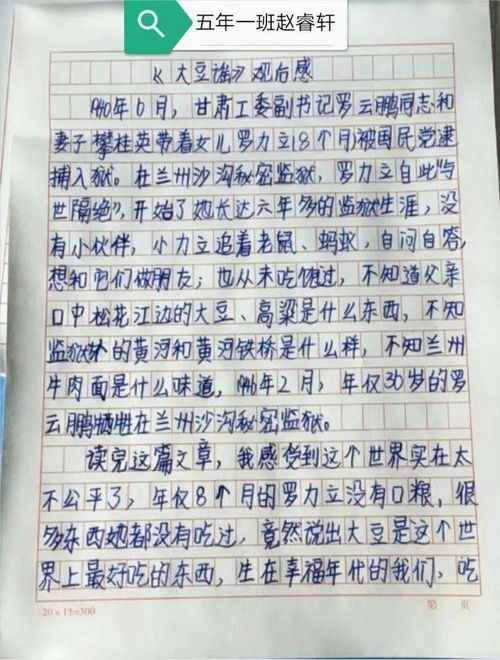 五年一班赵睿轩
《大豆谣》观后感
1940年6月，甘肃工委副书记罗云鹏同志和
妻子攀桂英带着女儿罗力立8个月被国民党逮
捕入狱。在兰州沙沟秘密监狱，罗力立自此"与
世隔绝"，开始了她长达六年多的监狱生涯，没
有小伙伴，小力立追着老鼠、蚂蚁，自问自答，
想和它们做朋友；也从未吃饱过，不知道父亲
口中松花江边的大豆、高粱是什么东西，不知
监狱外的黄河和黄河铁桥是什么样，不知兰州
牛肉面是什么味道，1946年2月，年仅36岁的罗
云鹏牺牲在兰州沙沟秘密监狱。
读完这篇文章，我感觉到这个世界实在太
不公平了，年仅8个月的罗力立没有口粮，很
多东西她都没有吃过，竟然说出大豆是这个世
界上最好吃的东西，生在幸福年代的我们，吃
20×15=300
第 页